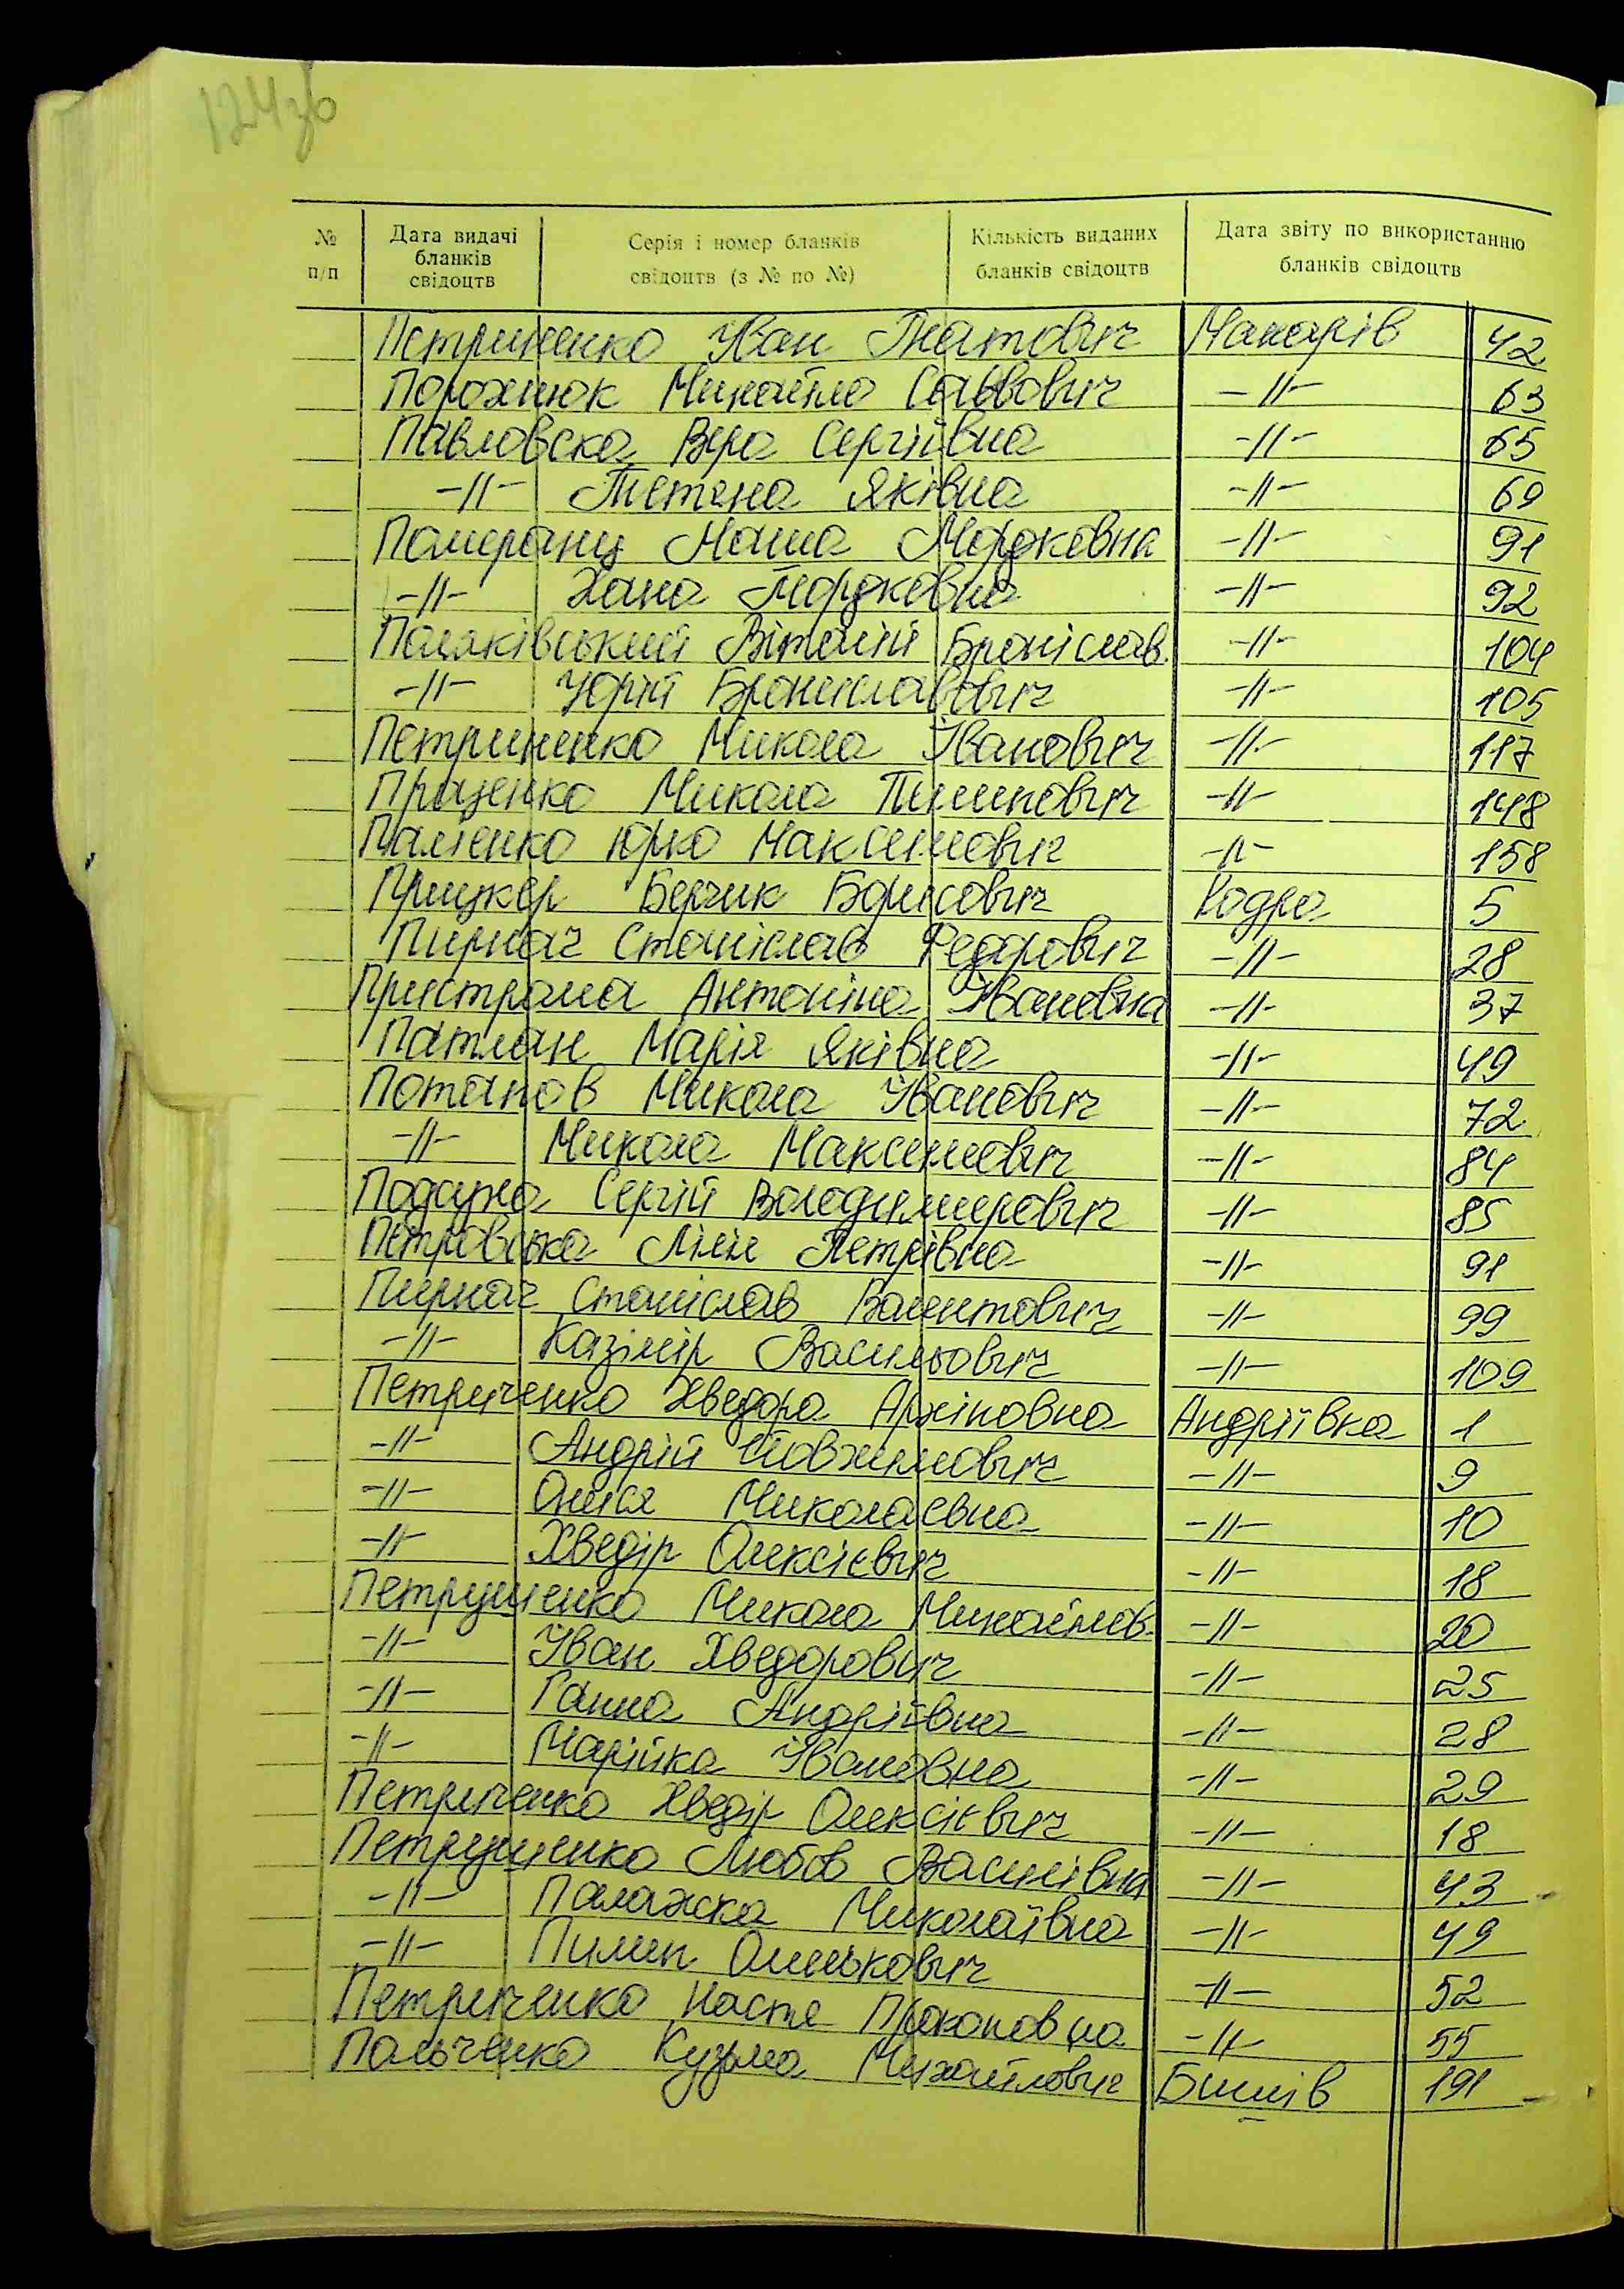 124зв
№ п/п | Дата видачі бланків свідоцтв | Серія і номер бланків свідоцтв (з № по №) | Кількість виданих бланків свідоцтв | Дата звіту по використанню бланків свідоцтв
Петриненко Іван Гнатович Макарів 42
Порохнюк Михайло Саввович -//- 63
Павловска Вера Сергіївна -//- 65
-//- Тетяна Яківна -//- 69
Померанц Маша Мордковна -//- 91
-//- Хана Мордковна -//- 92
Поляківський Віталій Броніслав. -//- 104
-//- Юрій Брониславович -//- 105
Петриненко Микола Іванович -//- 117
Проценко Микола Пилипович -//- 148
Палієнко Юрко Максимович -//- 158
Прицкер Берчик Борисович Кодра 5
Пирнач Станіслав Федорович -//- 28
Пристрома Антоніна Івановна -//- 37
Патлан Марія Яківна -//- 49
Потапов Микола Іванович -//- 72
-//- Микола Максимович -//- 84
Сергій Володимирович -//- 85
Петровська Лілія Петрівна -//- 91
Пирнач Станіслав Валентович -//- 99
-//- Казімір Васильович -//- 109
Петриченко Хведора Архіповна Андріївка 1
-//- Андрій Йовхимович -//- 9
-//- Онися Миколаєвна -//- 10
-//- Хведір Олексієвич -//- 18
Петрущенко Микола Михайлов. -//- 20
-//- Іван Хведорович -//- 25
-//- Ганна Андріївна -//- 28
-//- Марійка Івановна -//- 29
Петриченко Хведір Олексієвич -//- 18
Петрущенко Любов Василівна -//- 43
-//- Палажка Миколаївна -//- 49
-//- Пилип Олелькович -//- 52
Петриченко Настя Прокоповна -//- 55
Пальченко Кузьма Михайлович Бишів 191